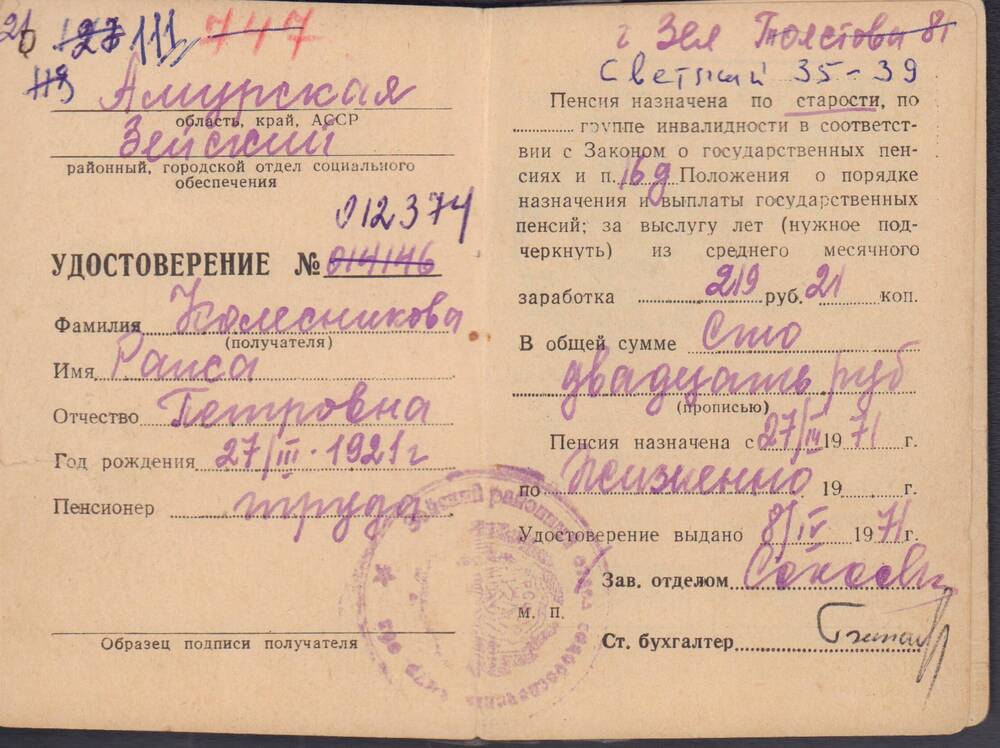 111 747
Амурская
область, край, АССР
Зейский
районный, городской отдел социального
обеспечения
012374
УДОСТОВЕРЕНИЕ № 014146
Фамилия Колесникова
(получателя)
Имя Раиса
Отчество Петровна
Год рождения 27/III-1921г
Пенсионер труда
Образец подписи получателя
г Зея Толстова 81
Светлый 35-39
Пенсия назначена по старости, по
группе инвалидности в соответст-
вии с Законом о государственных пен-
сиях и п. 16д Положения о порядке
назначения и выплаты государственных
пенсий; за выслугу лет (нужное под-
черкнуть) из среднего месячного
заработка 219 руб. 21 коп.
В общей сумме Сто
двадцать руб
(прописью)
Пенсия назначена с 27/III 1971 г.
по Пожизненно 19 г.
Удостоверение выдано 8/IV 1971 г.
Зав. отделом
м. п.
Ст. бухгалтер